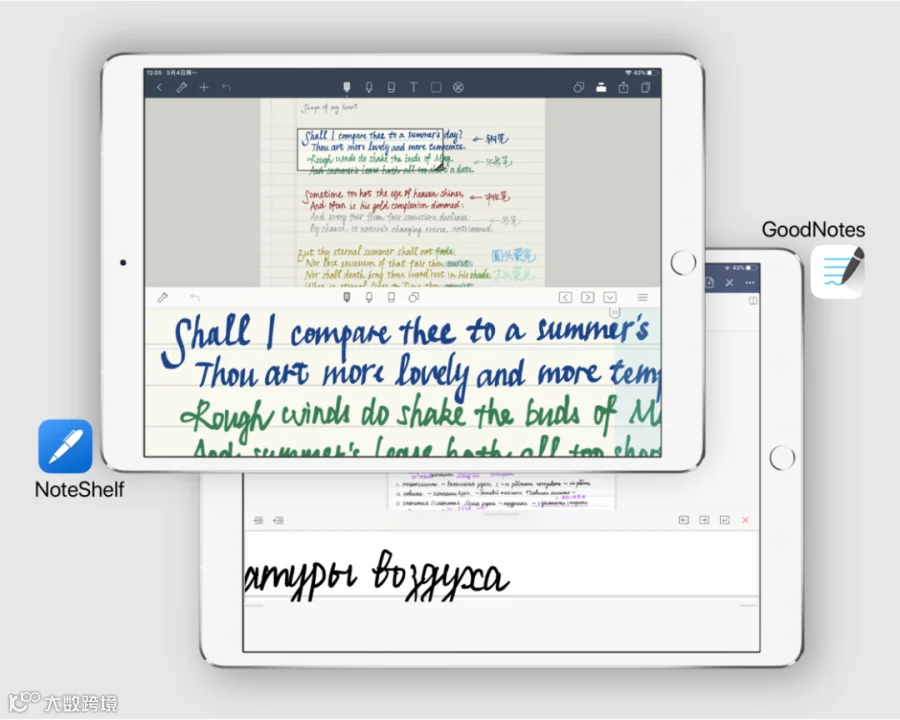 12:05 5月4日周一
43%
Shape of my heart
Shall I compare thee to a summer's day?
Thou art more lovely and more temperate.
Rough winds do shake the buds of May,
And summer's lease hath all too short a date.
← 钢笔
Sometime too hot the eye of heaven shines,
And often is his gold complexion dimmed;
And every fair from fair sometime declines,
By chance, or nature's changing course, untrimmed.
But thy eternal summer shall not fade,
Nor lose possession of that fair thou
Nor shall death brag thou wand'rest in his shade
When in eternal lines to Time thou
圆头荧光
Shall I compare thee to a summer's
Thou art more lovely and more temp
Rough winds do shake the buds of M
And summer's lease hath all too shor
GoodNotes
43%
NoteShelf
атуры воздуха
大数跨境